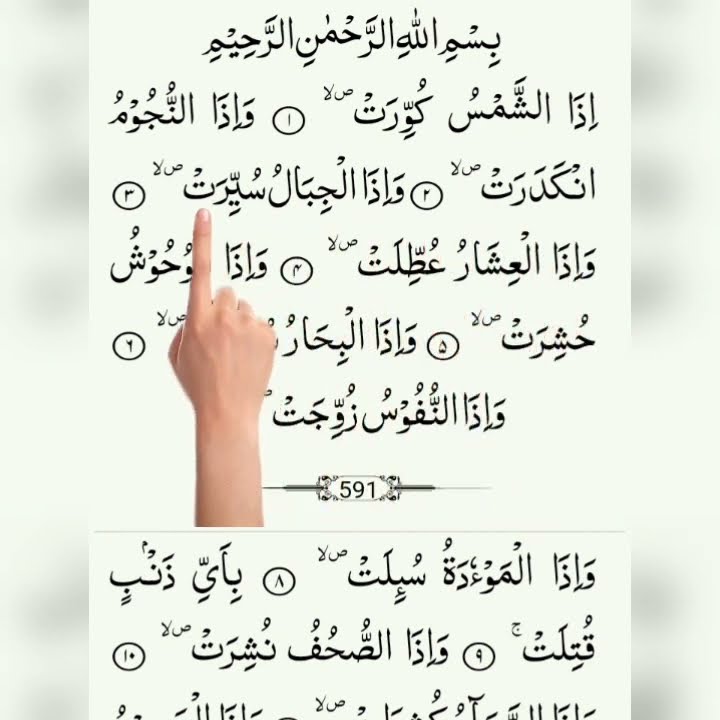 بِسْمِ اللّٰهِ الرَّحْمٰنِ الرَّحِيْمِ
اِذَا الشَّمْسُ كُوِّرَتْ ۙ ۪ ۱ وَاِذَا النُّجُوْمُ
انْكَدَرَتْ ۙ ۪ ۲ وَاِذَا الْجِبَالُ سُيِّرَتْ ۙ ۪ ۳
وَاِذَا الْعِشَارُ عُطِّلَتْ ۙ ۪ ۴ وَاِذَا
حُشِرَتْ ۙ ۪ ۵ وَاِذَا الْبِحَارُ ۶
وَاِذَا النُّفُوْسُ زُوِّجَتْ
591
وَاِذَا الْمَوْءٗدَةُ سُىِٕلَتْ ۙ ۪ ۸ بِاَىِّ ذَنْۢبٍ
قُتِلَتْ ۚ ۹ وَاِذَا الصُّحُفُ نُشِرَتْ ۙ ۪ ۱۰